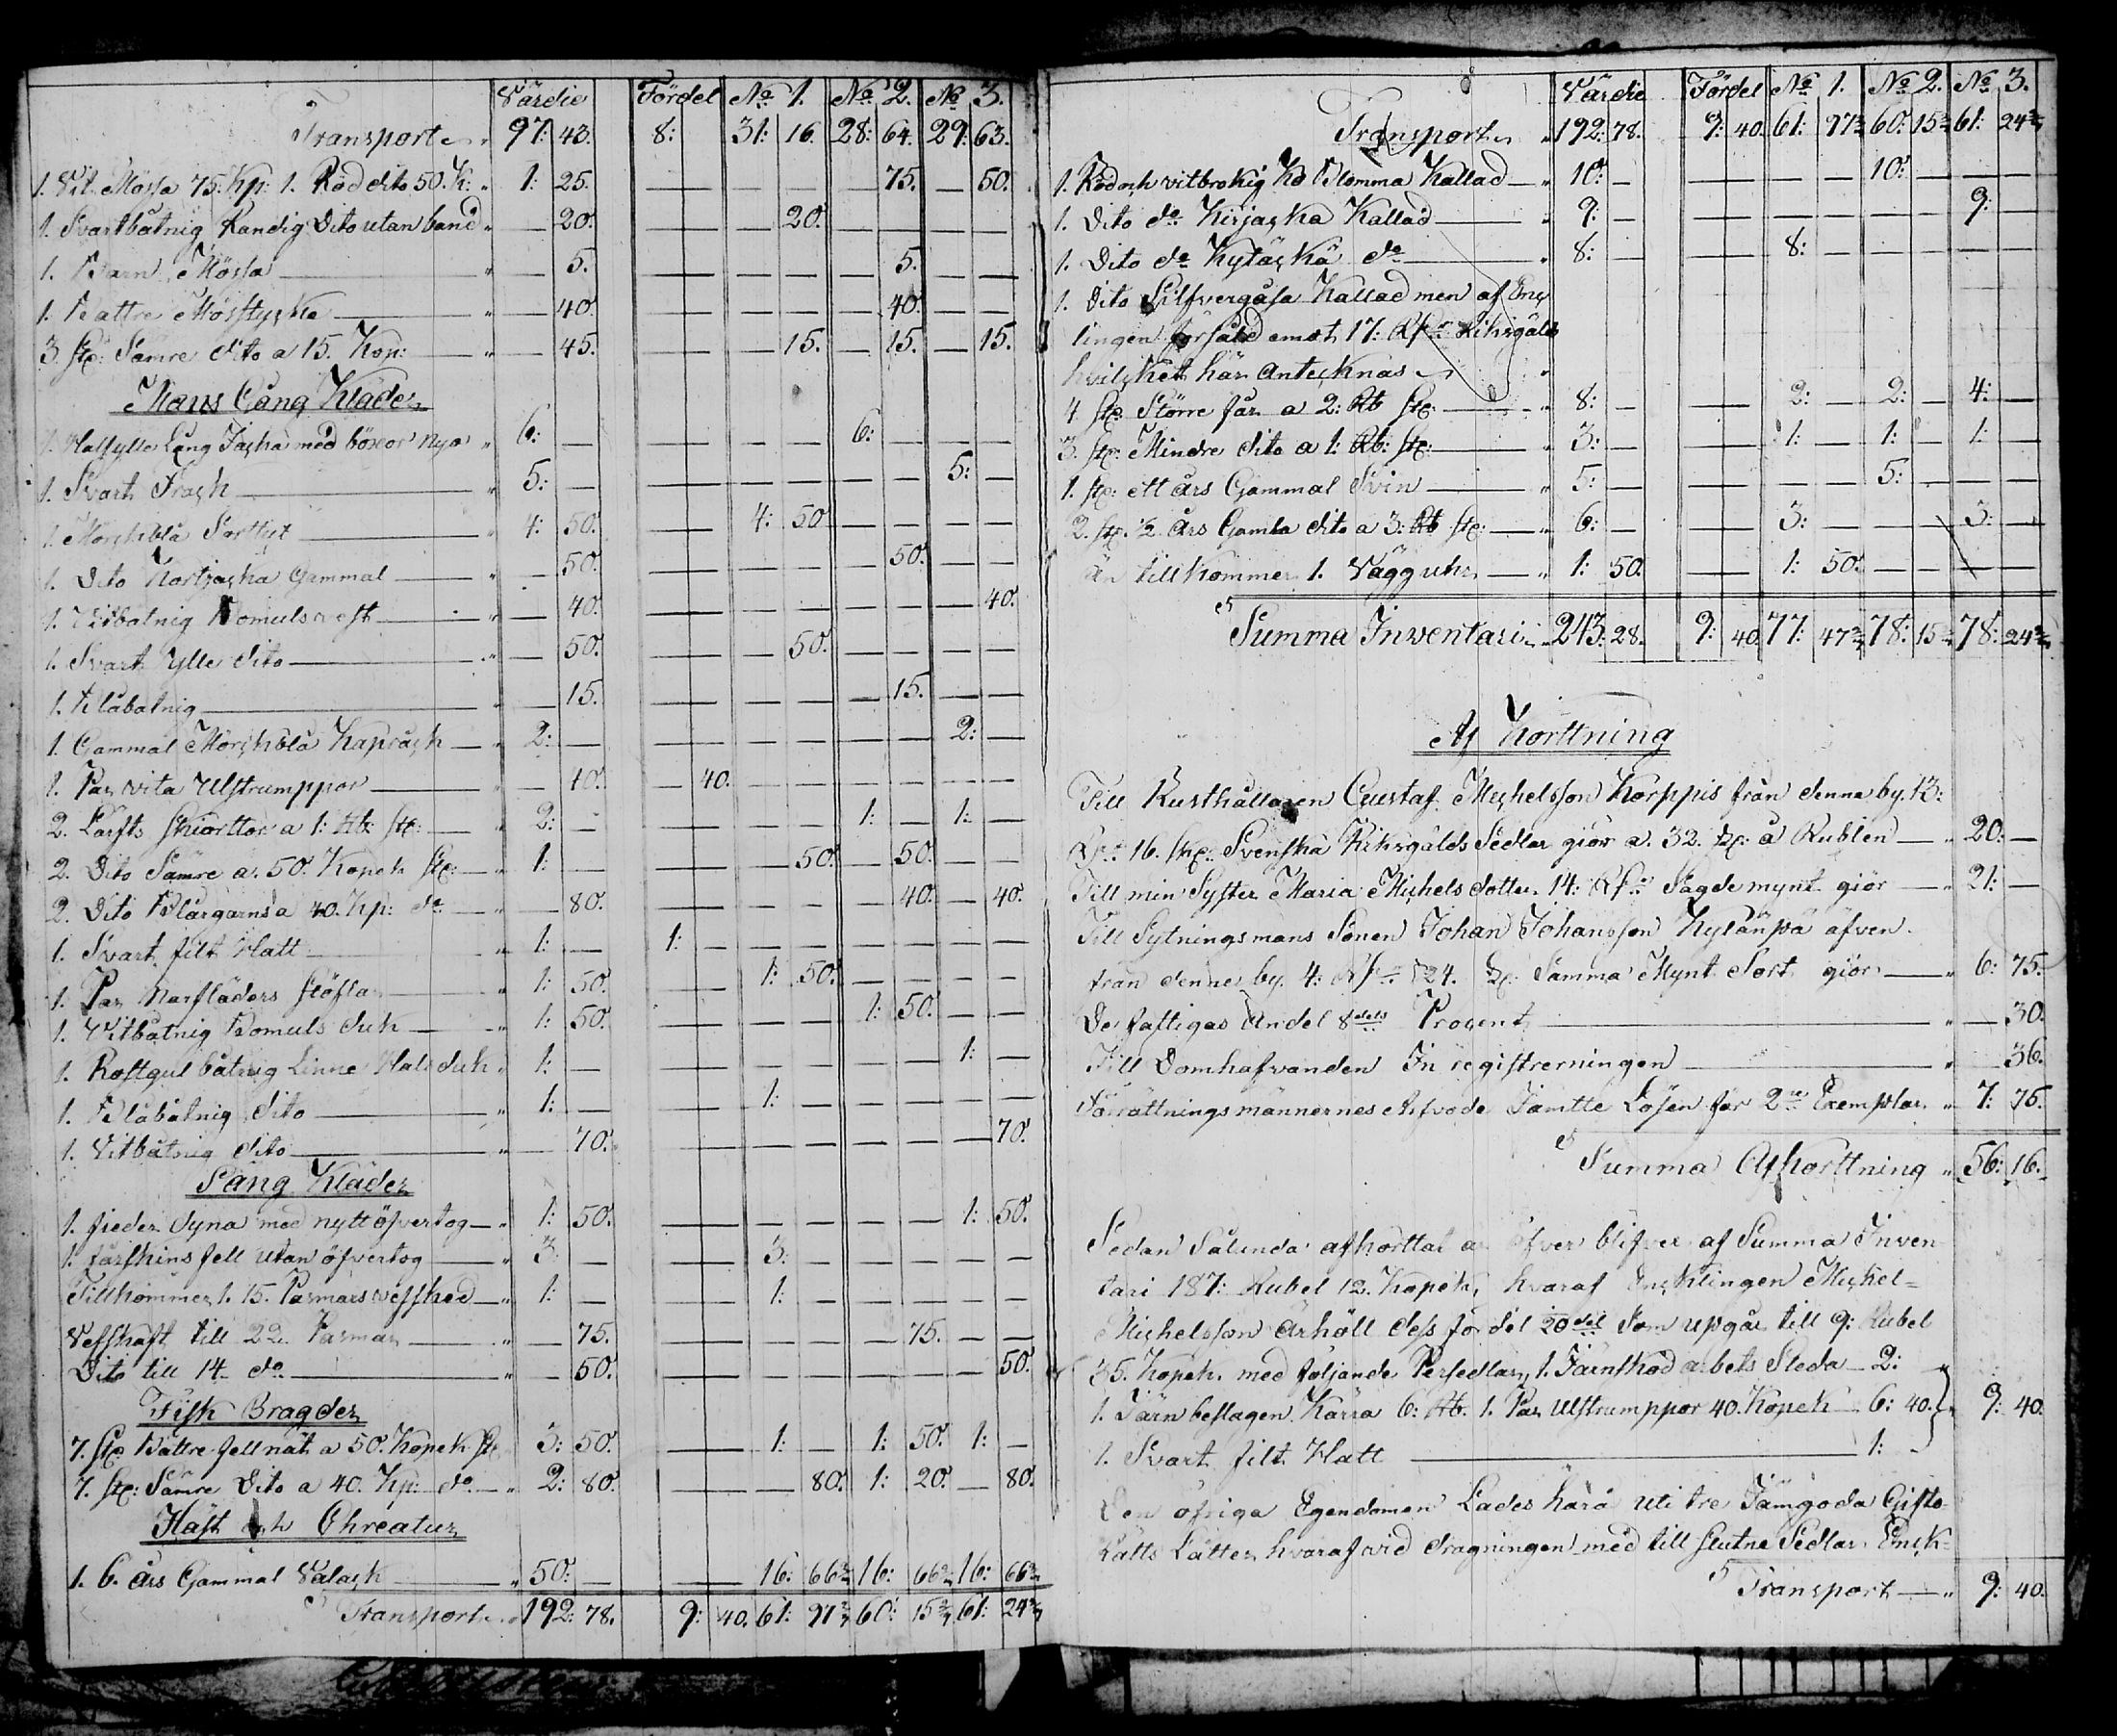 Värdie Fördel No 1. No 2. No 3.
Transport 97: 43. 8: 31: 16. 28: 64. 29: 63.
1. Vit Mössa 75. Kp: 1. Röd dito 50. K: „ 1: 25. — — — — 75. — 50.
1. Svartbåtnig Randig Dito utan band „ — 20. — — 20. — — — —
1. Barn Mössa — „ — 5. — — — — 5. — —
1. Battre Mösstycke — „ — 40. — — — — 40. — —
3 st: Sämre dito a 15. Kop: — „ — 45. — — 15. — 15. — 15.
Mans Gång Kläder
1. Halfylle Lång Jacka med böxor Nya „ 6: — — — — 6: — — —
1. Svart Frack — „ 5: — — — — — — 5: —
1. Mörckblå Sortut — „ 4: 50. — 4: 50 — — — —
1. Dito Kortjacka Gammal — „ — 50. — — — — 50. — —
1. Vitbatnig Bomulsvest — „ — 40. — — — — — — 40.
1. Svart Ylle dito — „ — 50. — — 50. — — — —
1. blåbatnig — „ — 15. — — — — 15. — —
1. Gammal Mörckblå Kapråck — „ 2: — — — — — — 2: —
1. Par vita Ulstrumppor — „ — 40. 40. — — — — — —
2. Lärfts Skiorttor a 1: Rb: st: — „ 2: — — — — 1: — 1: —
2. Dito Sämre a 50. Kopek st: — „ 1: — — — 50. — 50. — —
2. Dito Blårgarns a 40. Kp: do — „ — 80. — — — — 40. — 40.
1. Svart filt Hatt — „ 1: — 1: — — — — — — —
1. Par Narfläders Stöflar — „ 1: 50. — 1: 50. — — — —
1. Vitbåtnig Bomuls duk — „ 1: 50. — — — 1: 50. — —
1. Rostgul båtnig Linne Hals duk „ 1: — — — — — — 1: —
1. Blåbåtnig dito — „ 1: — — 1: — — — — —
1. Vitbåtnig dito — „ — 70. — — — — — — 70.
Säng Kläder
1. fjeder dyna med nytt öfvertog — „ 1: 50. — — — — — 1: 50.
1. fårskins fell utan öfvertog — „ 3: — — 3: — — — — —
Tillkommer 1. 15. Parmars vefsked — „ 1: — — 1: — — — — —
Vefskaft till 22. Parmar — „ — 75. — — — — 75. — —
Dito till 14 do — „ — 50. — — — — — — 50.
Fisk Bragder
7. st: Bättre fellnät a 50. Kopek st: 3: 50. — 1: — 1: 50. 1: —
7. st: Sämre Dito a 40. Kp: do — „ 2: 80. — — 80. 1: 20. — 80.
Häst och Chreatur
1. 6. års Gammal Valack — „ 50: — — 16: 66⅔ 16: 66⅔ 16: 66⅔
Transport „ 192: 78. 9: 40. 61: 97⅔ 60: 15⅔ 61: 24⅔
Värdie Fördel No 1. No 2. No 3.
Transport „ 192: 78. 9: 40. 61: 97⅔ 60: 15⅔ 61: 24⅔
1. Röd och vitbrokig Ko Blomma Kallad — „ 10: — — — — 10: — — —
1. Dito do Kirjacka Kallad — „ 9: — — — — — — 9: —
1. Dito do Kytäckä do — „ 8: — — 8: — — — — —
1. Dito Silfvergåsa Kallad men af Enc
lingen försåld emot 17: Rdr Riksgäld
hvilcket här Antecknas „
4 st: Större får a 2: Rb st: — „ 8: — — 2: — 2: — 4: —
3. st: Mindre dito a 1: Rb: st: — „ 3: — — 1: — 1: — 1: —
1. st: ett års Gammal Svin — „ 5: — — — — 5: — — —
2. st: ½ års Gamla dito a 3: Rb st: — „ 6: — — 3: — — — 3: —
än tillkommer 1. Vägg uhr — „ 1: 50. — 1: 50. — — — —
Summa Inventari „ 243: 28. 9: 40. 77: 47⅔ 78: 15⅔ 78: 24⅔
Af Korttning
Till Rusthållaren Gustaf Michelsson Korppis från denna by. 13:
Rdr 16. sk: Svenska Riksgälds Sedlar giör a. 32. sk: å Rublen — „ 20: —
Till min Syster Maria Michels dotter 14: Rdr Sagde mynt giör — „ 21: —
Till Sytningsmans Sonen Johan Johansson Kylänpä äfven
från denne by. 4: Rdr 24. sk: Samma Mynt Sort giör — „ 6: 75.
De fattigas Andel 8dels Procent — „ — 30.
Till Domhafvanden In registrerningen — „ 36.
Förrättningsmännernes Arfvode Jämtte Lösen för 2ne Exemplar „ 7: 75.
Summa Afkorttning „ 56: 16.
Sedan Sålunda afkorttat är öfver blifver af Summa Inven
tari 187: Rubel 12. Kopek, hvaraf Encklingen Mickel=
Michelsson ärhöll dess fördel 20del som upgår till 9: Rubel
35. Kopek. med följande Persedlar, 1. Järnskod arbets Sleda — 2: „
1. Järn beslagen Kärra 6: Rb. 1. Par Ulstrumppor 40. Kopek 6: 40. } „ 9: 40.
1. Svart filt Hatt — 1: —
Den öfriga Egendomen Lades härå uti tre Jämgoda Gifto=
Rätts Låtter, hvaraf vid dragningen med till slutne Sedlar Enck=
Transport — „ 9: 40.